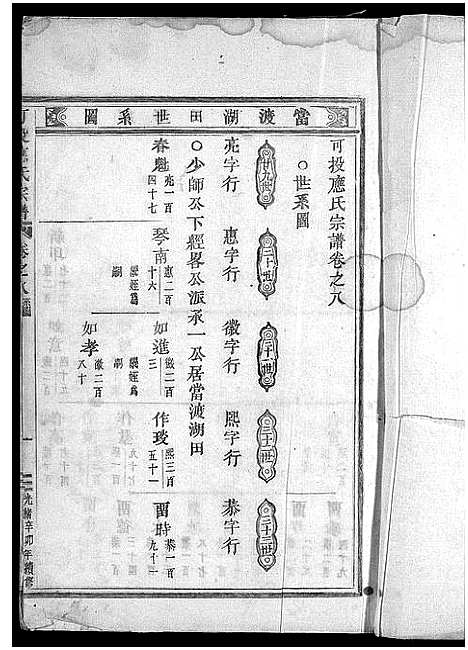 當渡湖田世系圖
可投應氏宗譜卷之八
○世系圖
廿九世
三十世
三十一世
三十二世
三十三世
亮字行
惠字行
徽字行
熙字行
恭字行
○少師公下經畧公派承一公居當渡湖田
春魁 亮一百四十七
琴南 惠二百十六 嗣
如進 徽二百三 嗣
作琰 熙三百五十一
爾時 恭一百九十一
如孝 徽二百八十
可投應氏宗譜 卷之八 圖
一
光緒辛卯年續修